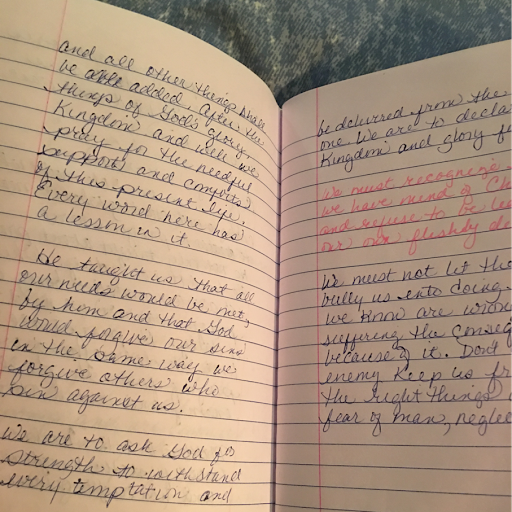 and all other things shall
be able added. After the
things of God's glory,
Kingdom and will we
pray for the needful
support and comforts
of this present life.
Every word here has
a lesson in it
He taught us that all
our needs would be met,
by him and that God
would forgive our sins
in the same way we
forgive others who
sin against us.
We are to ask God for
strength to withstand
every temptation and
be delivered from the
one we are to decla
Kingdom and glory fo
We must recognize
we have mind of "Ch
and refuse to be le
our own fleshly de
We must not let the
bully us into doing
we know are wron
suffering the conseq
because of it. Don't
enemy keep us fr
the right things
fear of man, neglec